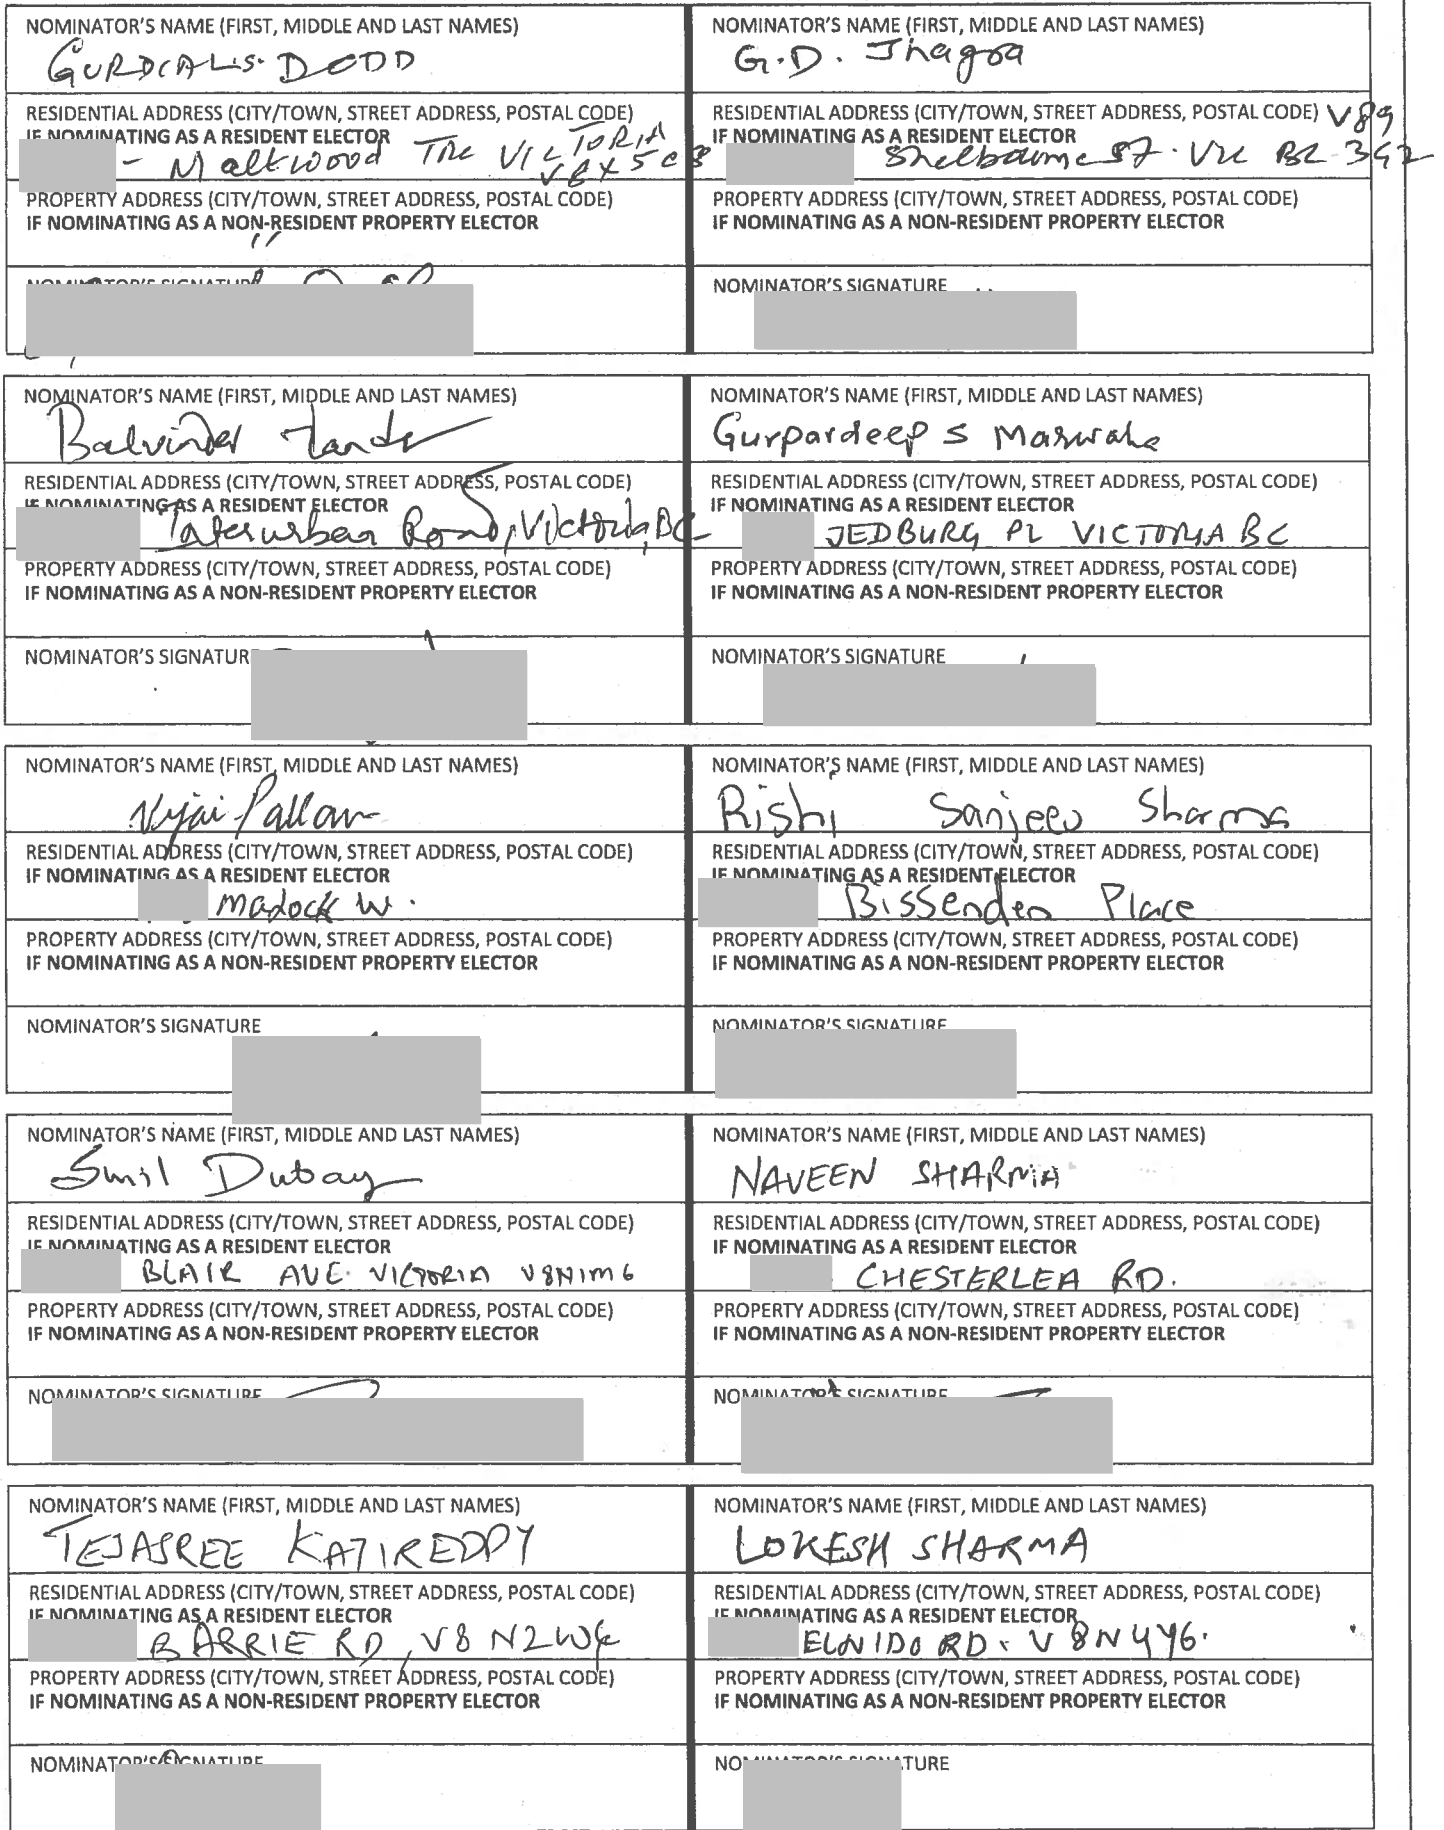 NOMINATOR'S NAME (FIRST, MIDDLE AND LAST NAMES)
GURDIAL S. DODD
RESIDENTIAL ADDRESS (CITY/TOWN, STREET ADDRESS, POSTAL CODE)
IF NOMINATING AS A RESIDENT ELECTOR
- Maltwood Tne VICTORIA
V8X5G8
PROPERTY ADDRESS (CITY/TOWN, STREET ADDRESS, POSTAL CODE)
IF NOMINATING AS A NON-RESIDENT PROPERTY ELECTOR
"
NOMINATOR'S SIGNATURE
NOMINATOR'S NAME (FIRST, MIDDLE AND LAST NAMES)
G.D. Jhagra
RESIDENTIAL ADDRESS (CITY/TOWN, STREET ADDRESS, POSTAL CODE) V8P
IF NOMINATING AS A RESIDENT ELECTOR
Shelbourne ST. Vic BC 3G2
PROPERTY ADDRESS (CITY/TOWN, STREET ADDRESS, POSTAL CODE)
IF NOMINATING AS A NON-RESIDENT PROPERTY ELECTOR
NOMINATOR'S SIGNATURE
NOMINATOR'S NAME (FIRST, MIDDLE AND LAST NAMES)
Balvinder
RESIDENTIAL ADDRESS (CITY/TOWN, STREET ADDRESS, POSTAL CODE)
IF NOMINATING AS A RESIDENT ELECTOR
Interurban Road, Victoria, BC
PROPERTY ADDRESS (CITY/TOWN, STREET ADDRESS, POSTAL CODE)
IF NOMINATING AS A NON-RESIDENT PROPERTY ELECTOR
NOMINATOR'S SIGNATUR
NOMINATOR'S NAME (FIRST, MIDDLE AND LAST NAMES)
Gurpardeep S Marwaha
RESIDENTIAL ADDRESS (CITY/TOWN, STREET ADDRESS, POSTAL CODE)
IF NOMINATING AS A RESIDENT ELECTOR
JEDBURG PL VICTORIA BC
PROPERTY ADDRESS (CITY/TOWN, STREET ADDRESS, POSTAL CODE)
IF NOMINATING AS A NON-RESIDENT PROPERTY ELECTOR
NOMINATOR'S SIGNATURE
NOMINATOR'S NAME (FIRST, MIDDLE AND LAST NAMES)
Vijai Pallan
RESIDENTIAL ADDRESS (CITY/TOWN, STREET ADDRESS, POSTAL CODE)
IF NOMINATING AS A RESIDENT ELECTOR
Madock W.
PROPERTY ADDRESS (CITY/TOWN, STREET ADDRESS, POSTAL CODE)
IF NOMINATING AS A NON-RESIDENT PROPERTY ELECTOR
NOMINATOR'S SIGNATURE
NOMINATOR'S NAME (FIRST, MIDDLE AND LAST NAMES)
Rishi Sanjeev Sharma
RESIDENTIAL ADDRESS (CITY/TOWN, STREET ADDRESS, POSTAL CODE)
IF NOMINATING AS A RESIDENT ELECTOR
Bissenden Place
PROPERTY ADDRESS (CITY/TOWN, STREET ADDRESS, POSTAL CODE)
IF NOMINATING AS A NON-RESIDENT PROPERTY ELECTOR
NOMINATOR'S SIGNATURE
NOMINATOR'S NAME (FIRST, MIDDLE AND LAST NAMES)
Sunil Dubay
RESIDENTIAL ADDRESS (CITY/TOWN, STREET ADDRESS, POSTAL CODE)
IF NOMINATING AS A RESIDENT ELECTOR
BLAIR AVE. VICTORIA V8N1M6
PROPERTY ADDRESS (CITY/TOWN, STREET ADDRESS, POSTAL CODE)
IF NOMINATING AS A NON-RESIDENT PROPERTY ELECTOR
NOMINATOR'S SIGNATURE
NOMINATOR'S NAME (FIRST, MIDDLE AND LAST NAMES)
NAVEEN SHARMA
RESIDENTIAL ADDRESS (CITY/TOWN, STREET ADDRESS, POSTAL CODE)
IF NOMINATING AS A RESIDENT ELECTOR
CHESTERLEA RD.
PROPERTY ADDRESS (CITY/TOWN, STREET ADDRESS, POSTAL CODE)
IF NOMINATING AS A NON-RESIDENT PROPERTY ELECTOR
NOMINATOR'S SIGNATURE
NOMINATOR'S NAME (FIRST, MIDDLE AND LAST NAMES)
TEJASREE KATIREDDY
RESIDENTIAL ADDRESS (CITY/TOWN, STREET ADDRESS, POSTAL CODE)
IF NOMINATING AS A RESIDENT ELECTOR
BARRIE RD, V8N2W6
PROPERTY ADDRESS (CITY/TOWN, STREET ADDRESS, POSTAL CODE)
IF NOMINATING AS A NON-RESIDENT PROPERTY ELECTOR
NOMINATOR'S SIGNATURE
NOMINATOR'S NAME (FIRST, MIDDLE AND LAST NAMES)
LOKESH SHARMA
RESIDENTIAL ADDRESS (CITY/TOWN, STREET ADDRESS, POSTAL CODE)
IF NOMINATING AS A RESIDENT ELECTOR
ELNIDO RD. V8N4Y6.
PROPERTY ADDRESS (CITY/TOWN, STREET ADDRESS, POSTAL CODE)
IF NOMINATING AS A NON-RESIDENT PROPERTY ELECTOR
NOMINATOR'S SIGNATURE